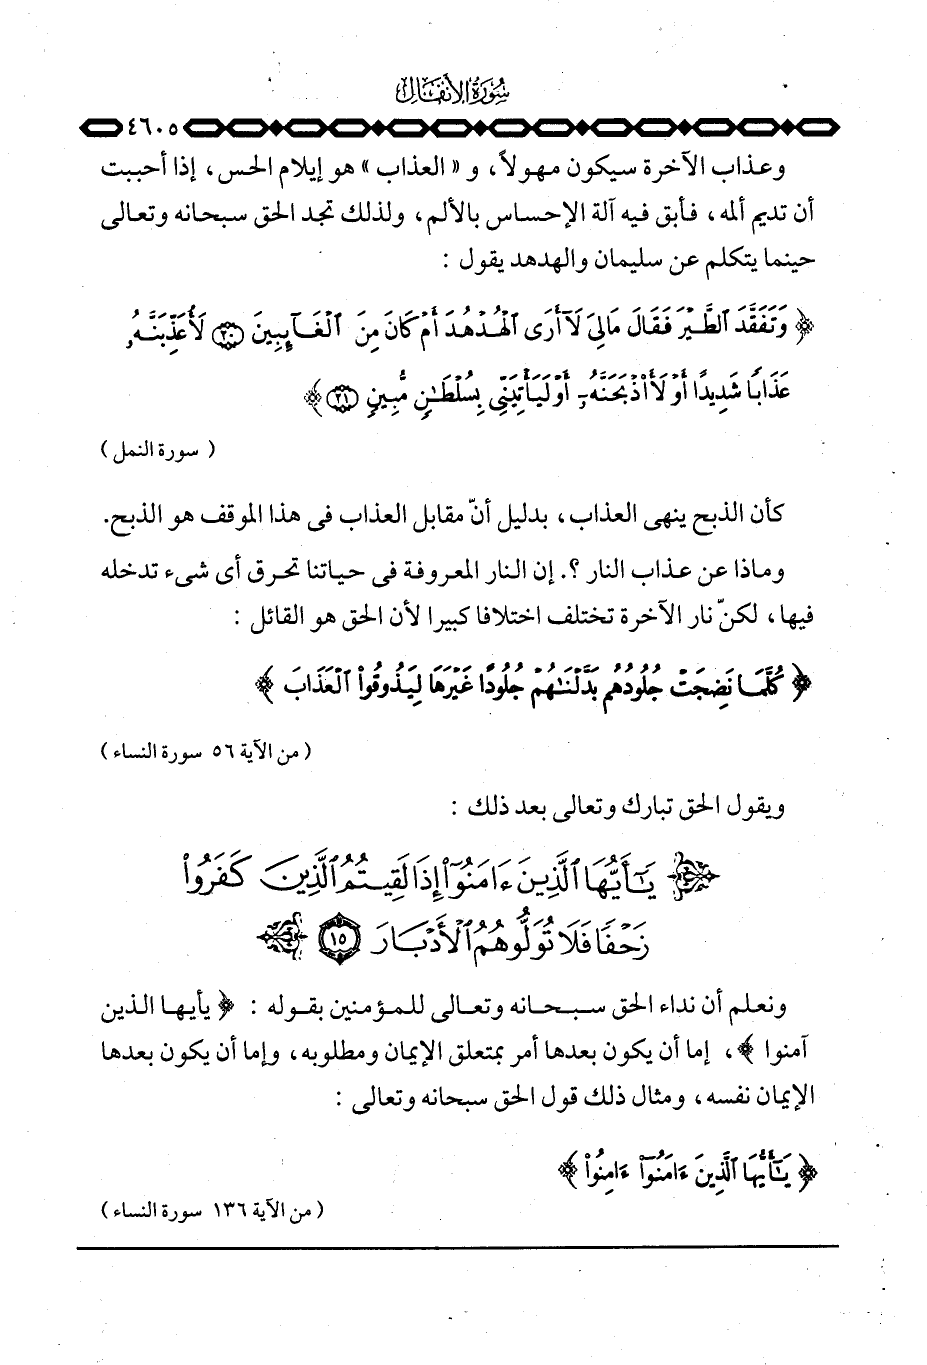 سورة الأنفال
٤٦٠٥
وعذاب الآخرة سيكون مهولاً، و « العذاب » هو إيلام الحس، إذا أحببت
أن تديم ألمه، فأبق فيه آلة الإحساس بالألم، ولذلك تجد الحق سبحانه وتعالى
حينما يتكلم عن سليمان والهدهد يقول :
﴿ وَتَفَقَّدَ ٱلطَّيْرَ فَقَالَ مَالِىَ لَآ أَرَى ٱلْهُدْهُدَ أَمْ كَانَ مِنَ ٱلْغَآئِبِينَ ٢٠ لَأُعَذِّبَنَّهُۥ
عَذَابًا شَدِيدًا أَوْ لَأَا۟ذْبَحَنَّهُۥٓ أَوْ لَيَأْتِيَنِّى بِسُلْطَـٰنٍ مُّبِينٍ ٢١ ﴾
( سورة النمل )
كأن الذبح ينهى العذاب، بدليل أنّ مقابل العذاب فى هذا الموقف هو الذبح.
وماذا عن عذاب النار ؟. إن النار المعروفة فى حياتنا تحرق أى شىء تدخله
فيها، لكنّ نار الآخرة تختلف اختلافا كبيرا لأن الحق هو القائل :
﴿ كُلَّمَا نَضِجَتْ جُلُودُهُم بَدَّلْنَـٰهُمْ جُلُودًا غَيْرَهَا لِيَذُوقُوا۟ ٱلْعَذَابَ ﴾
( من الآية ٥٦ سورة النساء )
ويقول الحق تبارك وتعالى بعد ذلك :
يَـٰٓأَيُّهَا ٱلَّذِينَ ءَامَنُوٓا۟ إِذَا لَقِيتُمُ ٱلَّذِينَ كَفَرُوا۟
زَحْفًا فَلَا تُوَلُّوهُمُ ٱلْأَدْبَارَ ١٥
ونعلم أن نداء الحق سبحانه وتعالى للمؤمنين بقوله : ﴿ يأيها الذين
آمنوا ﴾، إما أن يكون بعدها أمر بمتعلق الإيمان ومطلوبه، وإما أن يكون بعدها
الإيمان نفسه، ومثال ذلك قول الحق سبحانه وتعالى :
﴿ يَـٰٓأَيُّهَا ٱلَّذِينَ ءَامَنُوٓا۟ ءَامِنُوا۟ ﴾
( من الآية ١٣٦ سورة النساء )